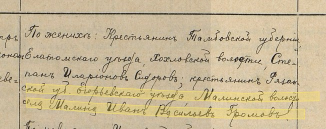 По женихѣ: Крестьянинъ Тамбовской губерніи
Елатомскаго уѣзда, Хохловской волости, Сте-
панъ Иларіоновъ Сидоровъ; крестьянинъ Рязан-
ской губ. егорьевскаго уѣзда Малинской волости
села Малина Иванъ Васильевъ Громовъ